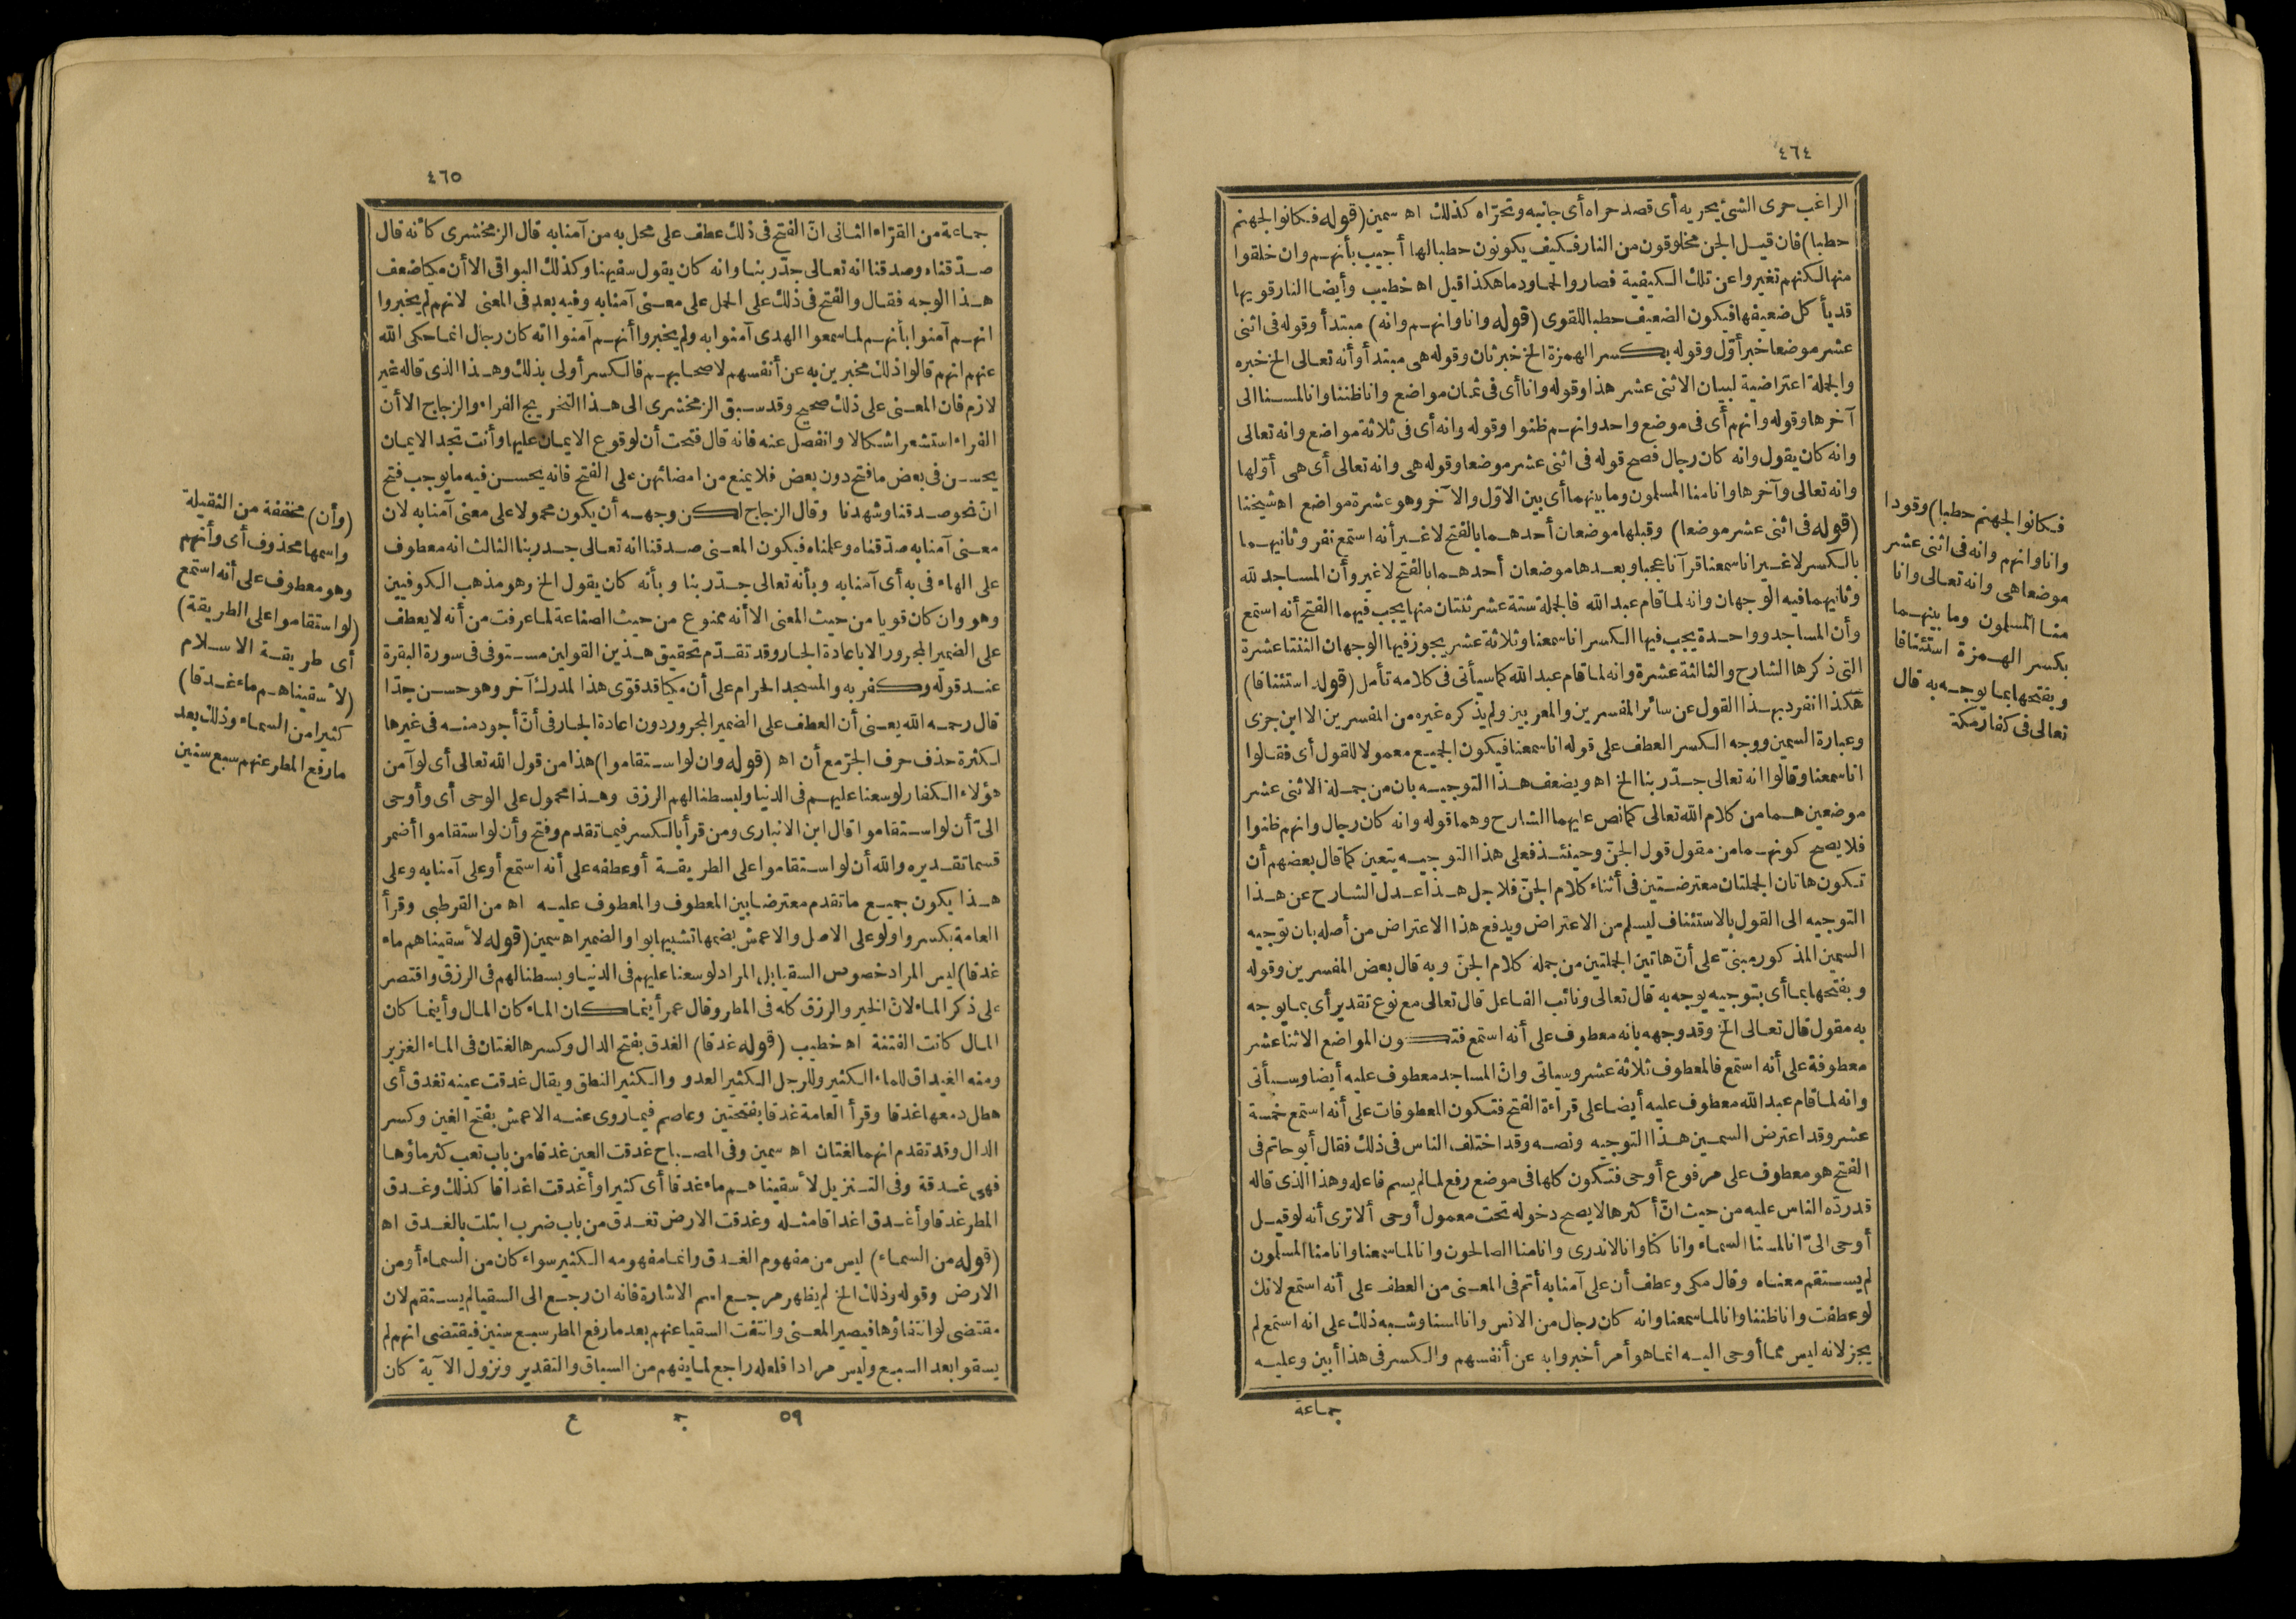 ٤٦٤
الراغب حرى الشئ يحريه أى قصد حراه أى جانبه وتحرّاه كذلك اه سمين (قوله فكانوا لجهنم
حطبا) فان قيل الجن مخلوقون من النار فكيف يكونون حطبا لها أجيب بأنهم وان خلقوا
منها لكنهم تغيروا عن تلك الكيفية فصاروا لحما ودما هكذا قيل اه خطيب وأيضا النار قويها
قد يأكل ضعيفها فيكون الضعيف حطبا للقوى (قوله وانا وانهم وانه) مبتدأ وقوله فى اثنى
عشر موضعا خبر أوّل وقوله بكسر الهمزة الخ خبر ثان وقوله هى مبتدأ وأنه تعالى الخ خبره
والجملة اعتراضية لبيان الاثنى عشر هذا وقوله وانا أى فى ثمان مواضع وانا ظننا وانا لمسنا الى
آخرها وقوله وانهم أى فى موضع واحد وانهم ظنوا وقوله وانه أى فى ثلاثة مواضع وانه تعالى
وانه كان يقول وانه كان رجال فصح قوله فى اثنى عشر موضعا وقوله هى وانه تعالى أى هى أوّلها
وانه تعالى وآخرها وانا منا المسلمون وما بينهما أى بين الاوّل والآخر وهو عشرة مواضع اه شيخنا
(قوله فى اثنى عشر موضعا) وقبلها موضعان أحدهما بالفتح لا غير أنه استمع نفر وثانيهما
بالكسر لا غير انا سمعنا قرآنا عجبا وبعدها موضعان أحدهما بالفتح لا غير وأن المساجد لله
وثانيهما فيه الوجهان وانه لما قام عبد الله فالجملة ستة عشر ثنتان منها يجب فيهما الفتح أنه استمع
وأن المساجد وواحدة يجب فيها الكسر انا سمعنا وثلاثة عشر يجوز فيها الوجهان الثنتا عشرة
التى ذكرها الشارح والثالثة عشرة وانه لما قام عبد الله كما سيأتى فى كلامه تأمل (قوله استئنافا)
هكذا انفرد بهذا القول عن سائر المفسرين والمعربين ولم يذكره غيره من المفسرين الا ابن جزى
وعبارة السمين ووجه الكسر العطف على قوله انا سمعنا فيكون الجميع معمولا للقول أى فقالوا
انا سمعنا وقالوا انه تعالى جدّ ربنا الخ اه ويضعف هذا التوجيه بان من جملة الاثنى عشر
موضعين هما من كلام الله تعالى كما نص عليهما الشارح وهما قوله وانه كان رجال وانهم ظنوا
فلا يصح كونهما من مقول قول الجنّ وحينئذ فعلى هذا التوجيه يتعين كما قال بعضهم أن
تكون هاتان الجملتان معترضتين فى أثناء كلام الجنّ فلاجل هذا عدل الشارح عن هذا
التوجيه الى القول بالاستئناف ليسلم من الاعتراض ويدفع هذا الاعتراض من أصله بان توجيه
السمين المذكور مبنىّ على أنّ هاتين الجملتين من جملة كلام الجنّ وبه قال بعض المفسرين وقوله
وبفتحها بما أى بتوجيه يوجه به قال تعالى ونائب الفاعل قال تعالى مع نوع تقدير أى بما يوجه
به مقول قال تعالى الخ وقد وجهه بانه معطوف على أنه استمع فتكون المواضع الاثنا عشر
معطوفة على أنه استمع فالمعطوف ثلاثة عشر وسيأتى وانّ المساجد معطوف عليه أيضا وسيأتى
وانه لما قام عبد الله معطوف عليه أيضا على قراءة الفتح فتكون المعطوفات على أنه استمع خمسة
عشر وقد اعترض السمين هذا التوجيه ونصه وقد اختلف الناس فى ذلك فقال أبو حاتم فى
الفتح هو معطوف على مرفوع أوحى فتكون كلها فى موضع رفع لما لم يسم فاعله وهذا الذى قاله
قد ردّه الناس عليه من حيث انّ أكثرها لا يصح دخوله تحت معمول أوحى ألا ترى أنه لو قيل
أوحى الىّ انا لمسنا السماء وانا كنا وانا لا ندرى وانا منا الصالحون وانا لما سمعنا وانا منا المسلمون
لم يستقم معناه وقال مكى وعطف أن على آمنا به أتم فى المعنى من العطف على أنه استمع لانك
لو عطفت وانا ظننا وانا لما سمعنا وانه كان رجال من الانس وانا لمسنا وشبه ذلك على انه استمع لم
يجز لانه ليس مما أوحى اليه انما هو أمر أخبروا به عن أنفسهم والكسر فى هذا أبين وعليه
جماعة
فكانوا لجهنم حطبا) وقودا
وانا وانهم وانه فى اثنى عشر
موضعا هى وانه تعالى وانا
منا المسلمون وما بينهما
بكسر الهمزة استئنافا
وبفتحها بما يوجه به قال
تعالى فى كفار مكة
٤٦٥
جماعة من القرّاء الثانى انّ الفتح فى ذلك عطف على محل به من آمنا به قال الزمخشرى كأنه قال
صدّقناه وصدقنا انه تعالى جدّ ربنا وانه كان يقول سفيهنا وكذلك البواقى الا أن مكيا ضعف
هذا الوجه فقال والفتح فى ذلك على الحمل على معنى آمنا به وفيه بعد فى المعنى لانهم لم يخبروا
انهم آمنوا بأنهم لما سمعوا الهدى آمنوا به ولم يخبروا أنهم آمنوا انه كان رجال انما حكى الله
عنهم انهم قالوا ذلك مخبرين به عن أنفسهم لاصحابهم فالكسر أولى بذلك وهذا الذى قاله غير
لازم فان المعنى على ذلك صحيح وقد سبق الزمخشرى الى هذا التخريج الفراء والزجاج الا أن
الفراء استشعر اشكالا وانفصل عنه فانه قال فتحت أن لوقوع الايمان عليها وأنت تجد الايمان
يحسن فى بعض ما فتح دون بعض فلا يمنع من امضائهن على الفتح فانه يحسن فيه ما يوجب فتح
انّ نحو صدقنا وشهدنا وقال الزجاج لكن وجهه أن يكون محمولا على معنى آمنا به لان
معنى آمنا به صدّقناه وعلمناه فيكون المعنى صدقنا انه تعالى جد ربنا الثالث انه معطوف
على الهاء فى به أى آمنا به وبأنه تعالى جدّ ربنا وبأنه كان يقول الخ وهو مذهب الكوفيين
وهو وان كان قويا من حيث المعنى الا أنه ممنوع من حيث الصناعة لما عرفت من أنه لا يعطف
على الضمير المجرور الا باعادة الجار وقد تقدّم تحقيق هذين القولين مستوفى فى سورة البقرة
عند قوله وكفر به والمسجد الحرام على أن مكيا قد قوّى هذا لمدرك آخر وهو حسن جدّا
قال رحمه الله يعنى أن العطف على الضمير المجرور دون اعادة الجار فى أنّ أجود منه فى غيرها
لكثرة حذف حرف الجرّ مع أن اه (قوله وان لو استقاموا) هذا من قول الله تعالى أى لو آمن
هؤلاء الكفار لوسعنا عليهم فى الدنيا ولبسطنا لهم الرزق وهذا محمول على الوحى أى وأوحى
الىّ أن لو استقاموا قال ابن الانبارى ومن قرأ بالكسر فيما تقدم وفتح وأن لو استقاموا أضمر
قسما تقديره والله أن لو استقاموا على الطريقة أو عطفه على أنه استمع أو على آمنا به وعلى
هذا يكون جميع ما تقدم معترضا بين المعطوف والمعطوف عليه اه من القرطبى وقرأ
العامة بكسر واو لو على الاصل والاعمش بضمها تشبيها بواو الضمير اه سمين (قوله لأسقيناهم ماء
غدقا) ليس المراد خصوص السقيا بل المراد لوسعنا عليهم فى الدنيا وبسطنا لهم فى الرزق واقتصر
على ذكر الماء لانّ الخير والرزق كله فى المطر وقال عمر أينما كان الماء كان المال وأينما كان
المال كانت الفتنة اه خطيب (قوله غدقا) الغدق بفتح الدال وكسرها لغتان فى الماء الغزير
ومنه الغيداق للماء الكثير وللرجل الكثير العدو والكثير النطق ويقال غدقت عينه تغدق أى
هطل دمعها غدقا وقرأ العامة غدقا بفتحتين وعاصم فيما روى عنه الاعمش بفتح الغين وكسر
الدال وقد تقدم انهما لغتان اه سمين وفى المصباح غدقت العين غدقا من باب تعب كثر ماؤها
فهى غدقة وفى التنزيل لأسقيناهم ماء غدقا أى كثيرا وأغدقت اغداقا كذلك وغدق
المطر غدقا وأغدق اغداقا مثله وغدقت الارض تغدق من باب ضرب ابتلت بالغدق اه
(قوله من السماء) ليس من مفهوم الغدق وانما مفهومه الكثير سواء كان من السماء أو من
الارض وقوله وذلك الخ لم يظهر مرجع اسم الاشارة فانه ان رجع الى السقيا لم يستقم لان
مقتضى لو انتفاؤها فيصير المعنى وانتفت السقيا عنهم بعد ما رفع المطر سبع سنين فيقتضى انهم لم
يسقوا بعد السبع وليس مرادا فلعله راجع لما يفهم من السياق والتقدير ونزول الآية كان
٥٩ جـ ع
(وأن) مخففة من الثقيلة
واسمها محذوف أى وأنهم
وهو معطوف على أنه استمع
(لو استقاموا على الطريقة)
أى طريقة الاسلام
(لأسقيناهم ماء غدقا)
كثيرا من السماء وذلك بعد
ما رفع المطر عنهم سبع سنين